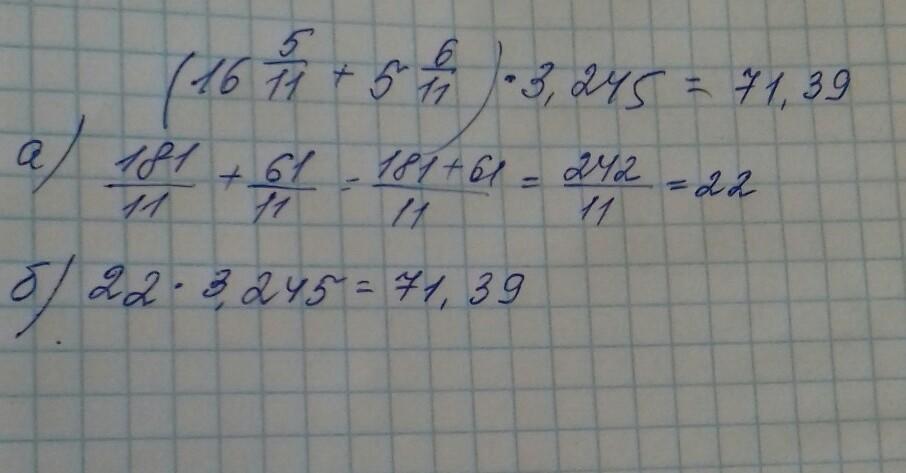 (16 5/11 + 5 6/11) · 3,245 = 71,39
а) 181/11 + 61/11 = 181+61/11 = 242/11 = 22
б) 22 · 3,245 = 71,39